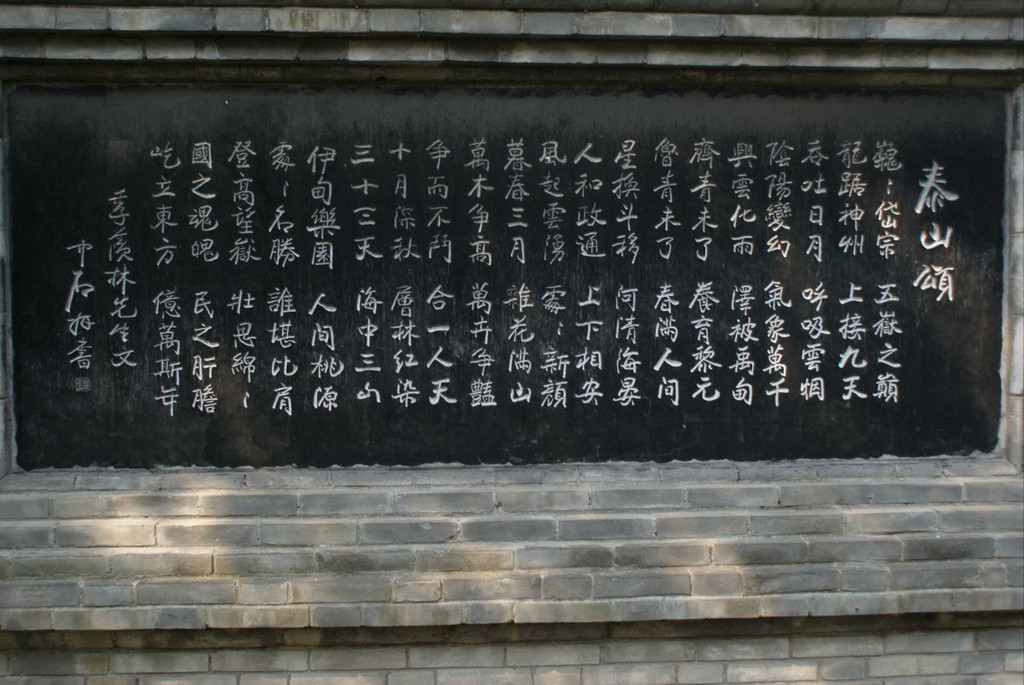 泰山頌
巍〻岱宗 五嶽之巔
龍踞神州 上接九天
吞吐日月 呼吸雲烟
陰陽變幻 氣象萬千
興雲化雨 澤被禹甸
齊青未了 養育黎元
魯青未了 春滿人间
星換斗移 河清海晏
人和政通 上下相安
風起雲湧 處〻新顔
暮春三月 雜花滿山
萬木争高 萬卉争豔
争而不鬥 合一人天
十月深秋 層林红染
三十三天 海中三山
伊甸樂園 人间桃源
處〻名勝 誰堪比肩
登高望嶽 壯思綿〻
國之魂魄 民之肝膽
屹立東方 億萬斯年
季羨林先生文
中石拜書